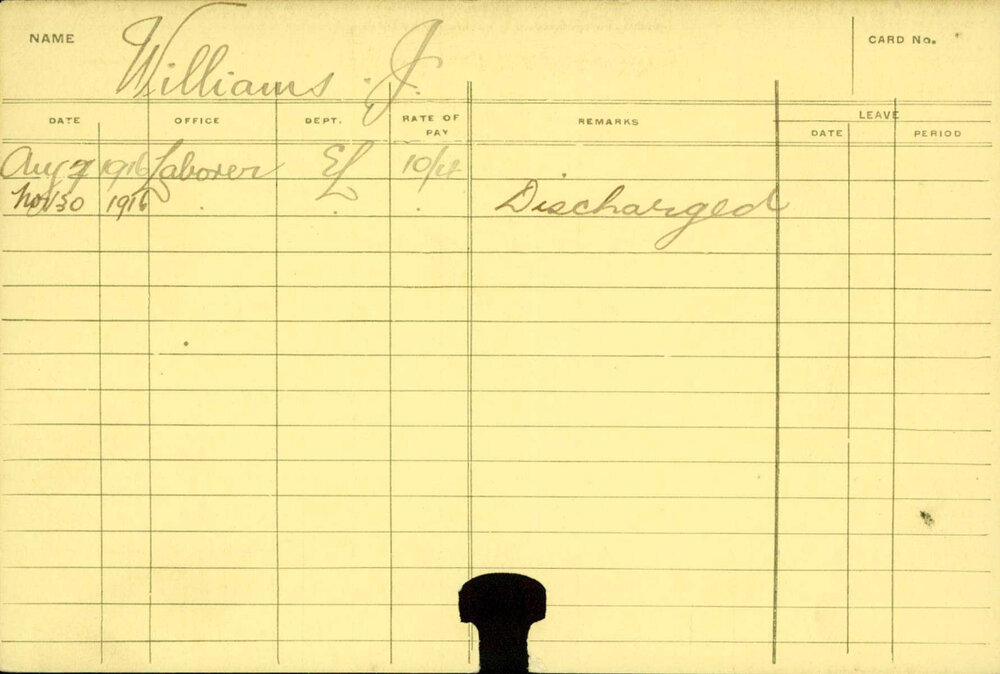 NAME Williams. J. CARD No.
DATE OFFICE DEPT. RATE OF PAY REMARKS LEAVE
DATE PERIOD
Aug 1916 Laborer EL 10/4
Nov 30 1916 . . . Discharged